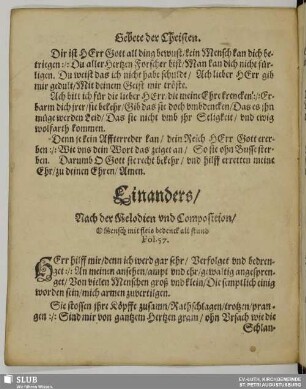 Gebete der Christen.
Dir ist HErr Gott all ding bewust/kein Mensch kan dich be-
triegen :/: Du aller Hertzen Forscher bist/Man kan dich nicht für-
ligen. Du weist das ich nicht habe schuldt/ Ach lieber HErr gib
mir gedult/Mit deinem Geist mir tröste.
Ach bitt ich für die lieber HErr die meine Ehr krencken :/: Er-
barm dich jrer/sie bekehr/Gib das sie doch vmbdencken/Das es jhn
müge werden leid/Das sie nicht vmb jhr Seligkeit/ vnd ewig
wolfarth kommen.
Denn je kein Affterreder kan/ dein Reich HErr Gott erer-
ben :/: Wie vns dein Wort das zeiget an/ So sie ohn Busse ster-
ben. Darumb O Gott sie recht bekehr/ vnd hilff erretten meine
Ehr/zu deinen Ehren/Amen.
Einanders/
Nach der Melodien vnd Composition/
O Mensch mit fleis bedenck all stund
Fol. 57.
HErr hilff mir/denn ich werd gar sehr/ Verfolget vnd bedren-
get :/: An meinen ansehen/ vnd ehr/gewaltig angespren-
get/ Von vielen Menschen gros vnd klein/Die semptlich einig
worden sein/mich armen zuvertilgen.
Sie stossen jhre Köpffe zusamn/Rathschlagen/trotzen/pran-
gen :/: Sind mir von gantzem Hertzen gram/ohn Vrsach wie die
Schlan-
SLUB
Wir führen Wissen.
EV.-LUTH. KIRCHGEMEINDE
ST. PETRI AUGUSTUSBURG